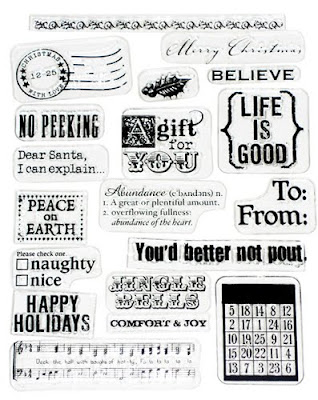 CHRISTMAS
12-25
WITH LOVE
Merry Christmas,
BELIEVE
NO PEEKING
A gift
for
YOU
{LIFE
IS
GOOD}
Dear Santa,
I can explain...
Abundance (c'bandans) n.
1. A great or plentiful amount.
2. overflowing fullness:
abundance of the heart.
To:
From:
PEACE
on
EARTH
You'd better not pout.
Please check one:
naughty
nice
JINGLE
BELLS
COMFORT & JOY
HAPPY
HOLIDAYS
Deck the hall with boughs of holly, Fa la la la la la la la la
5 18 12 1 24
13 2 14 6 17
10 9 21 3
19 11 7 16 8
15 20 22 23 4